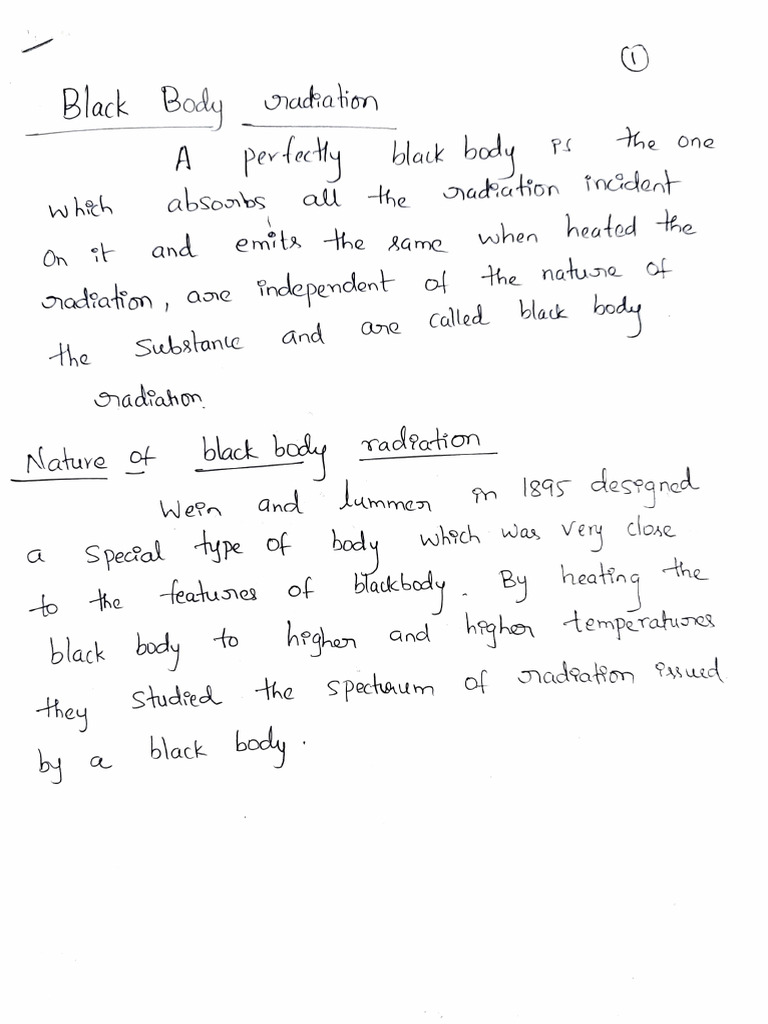 1
Black Body radiation
A perfectly black body is the one
which absorbs all the radiation incident
on it and emits the same when heated the
radiation, are independent of the nature of
the substance and are called black body
radiation.
Nature of black body radiation
Wein and lummer in 1895 designed
a special type of body which was very close
to the features of blackbody. By heating the
black body to higher and higher temperatures
they studied the spectrum of radiation issued
by a black body.